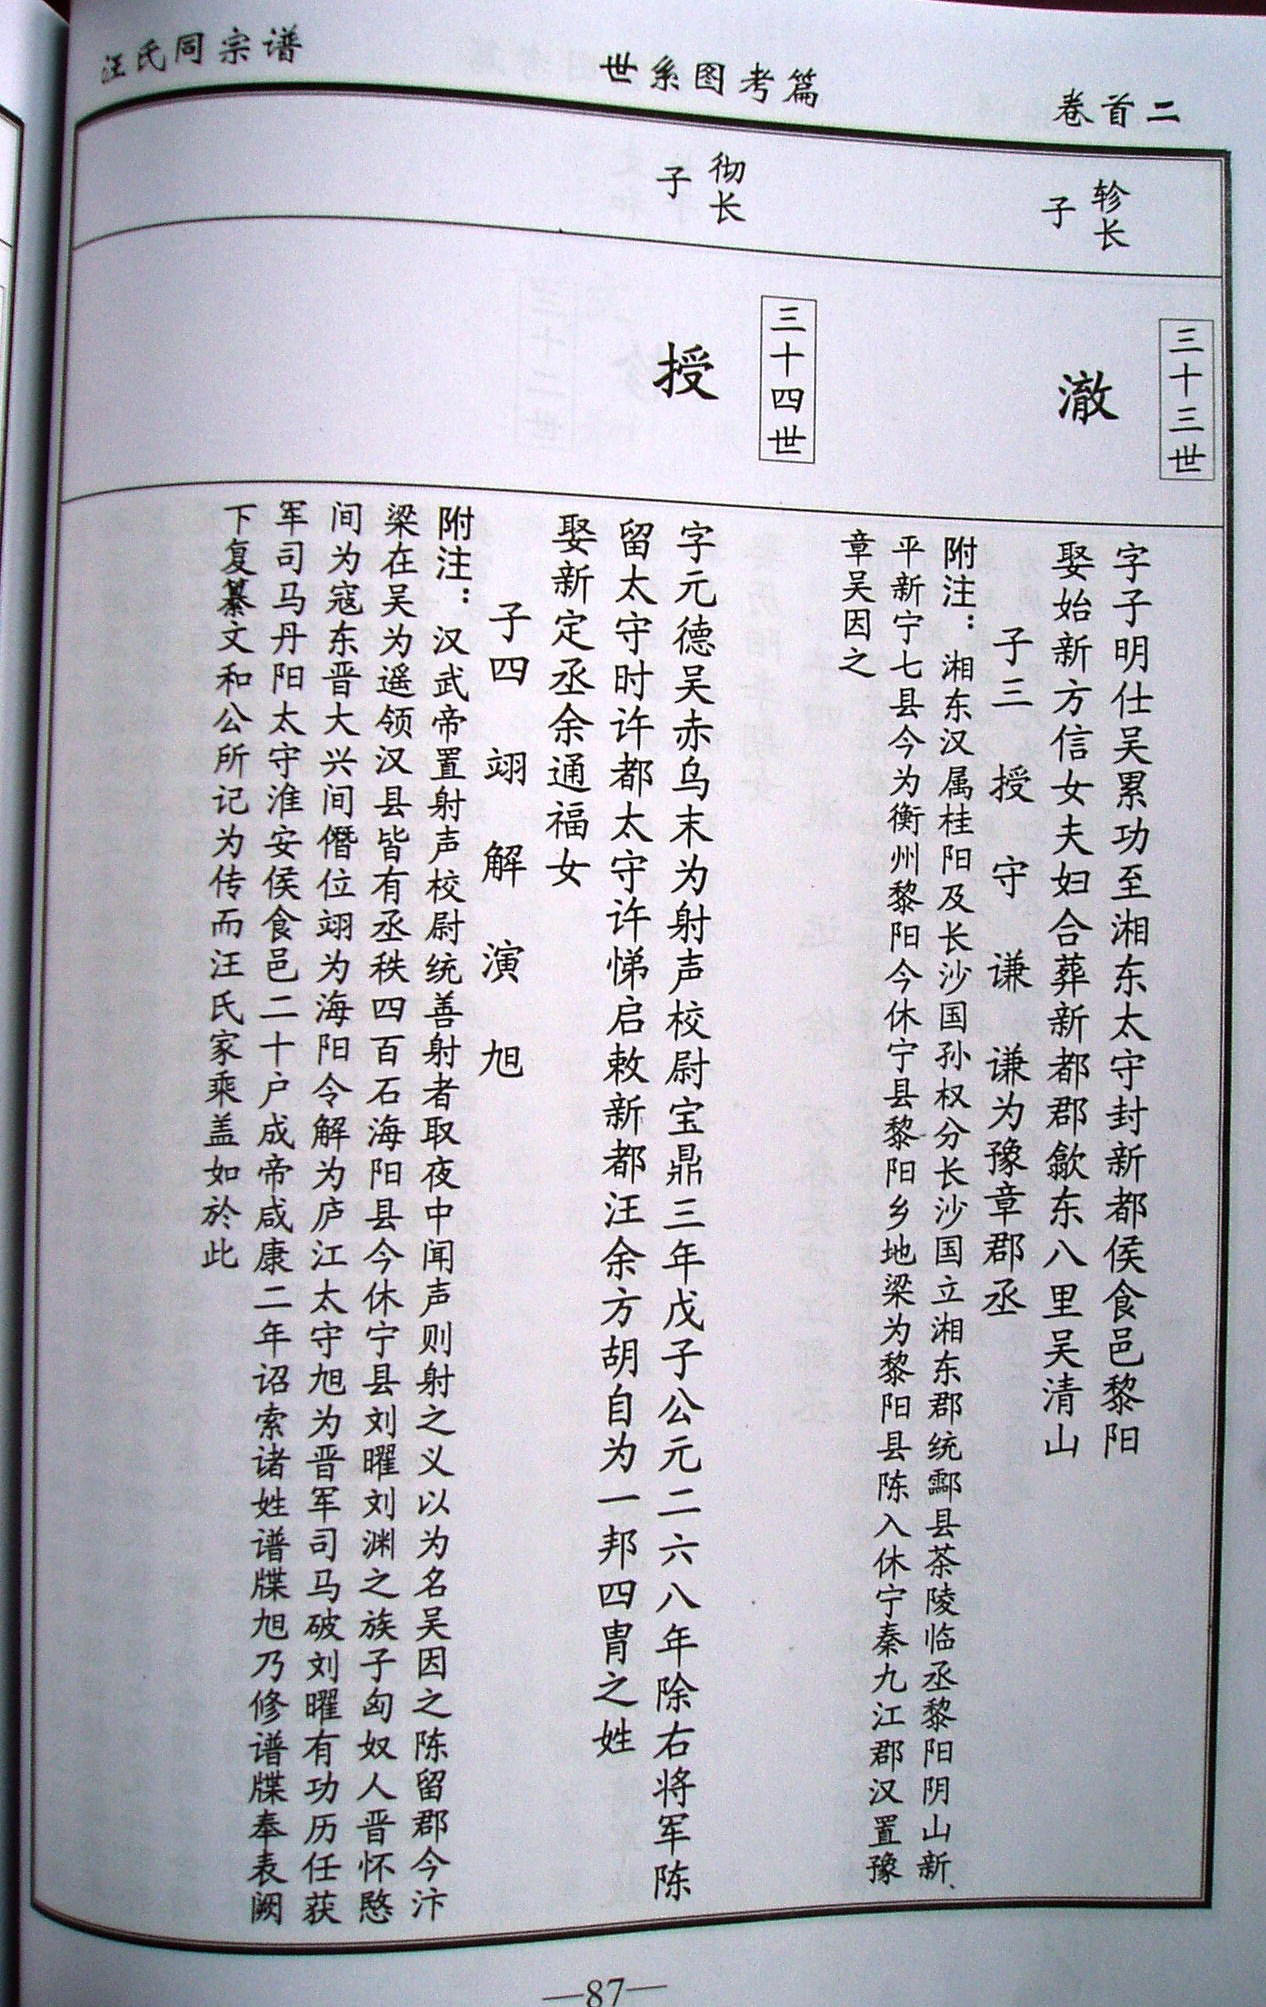 汪氏同宗谱
世系图考篇
卷首二
轸长
子
三十三世
澈
字子明仕吴累功至湘东太守封新都侯食邑黎阳
娶始新方信女夫妇合葬新都郡歙东八里吴清山
子三 授 守 谦 谦为豫章郡丞
附注：湘东汉属桂阳及长沙国孙权分长沙国立湘东郡统酃县茶陵临丞黎阳阴山新、
平新宁七县今为衡州黎阳今休宁县黎阳乡地梁为黎阳县陈入休宁秦九江郡汉置豫
章吴因之
彻长
子
三十四世
授
字元德吴赤乌末为射声校尉宝鼎三年戊子公元二六八年除右将军陈
留太守时许都太守许悌启敕新都汪余方胡自为一邦四胄之姓
娶新定丞余通福女
子四 翊 解 演 旭
附注：汉武帝置射声校尉统善射者取夜中闻声则射之义以为名吴因之陈留郡今汴
梁在吴为遥领汉县皆有丞秩四百石海阳县今休宁县刘曜刘渊之族子匈奴人晋怀愍
间为寇东晋大兴间僭位翊为海阳令解为庐江太守旭为晋军司马破刘曜有功历任获
军司马丹阳太守淮安侯食邑二十户成帝咸康二年诏索诸姓谱牒旭乃修谱牒奉表阙
下复纂文和公所记为传而汪氏家乘盖如於此
—87—